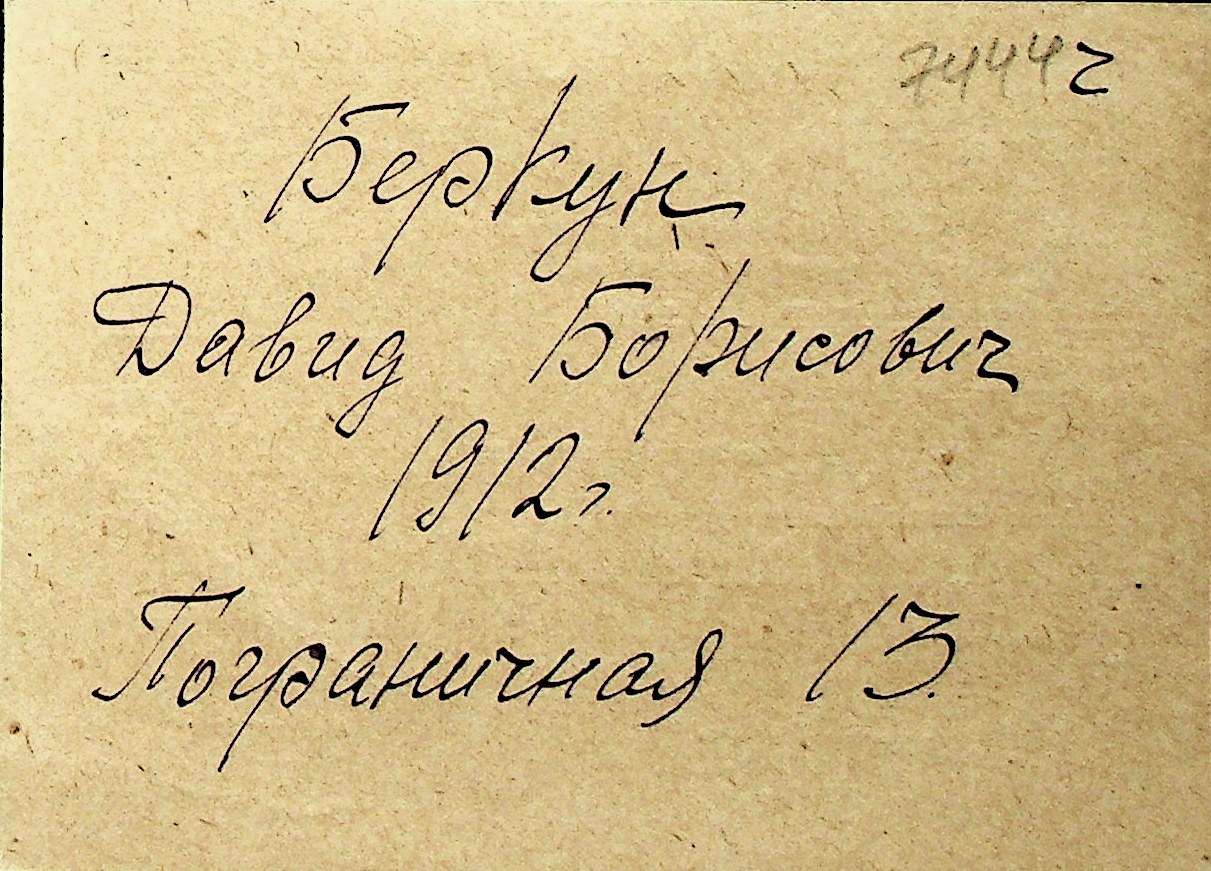 7444 г
Беркун
Давид Борисович
1912 г.
Пограничная 13.